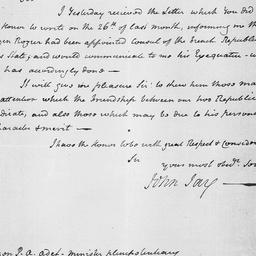 I Yesterday recieved the Letter which You did
Honor to write on the 26th of last month, informing me th
Rozier had been appointed Consul of the French Republi
State, and would communicate to me his Exequatur
has accordingly done —
It will give me pleasure Sir! to shew him those ma
attention which the Friendship between our two Republic
dicate, and also those which may be due to his persona
character & merit —
I have the honor to be with great Respect & Consider
Sir
your most obedt. Ser
John Jay —
P. A. Adet — minister plenipotentiary